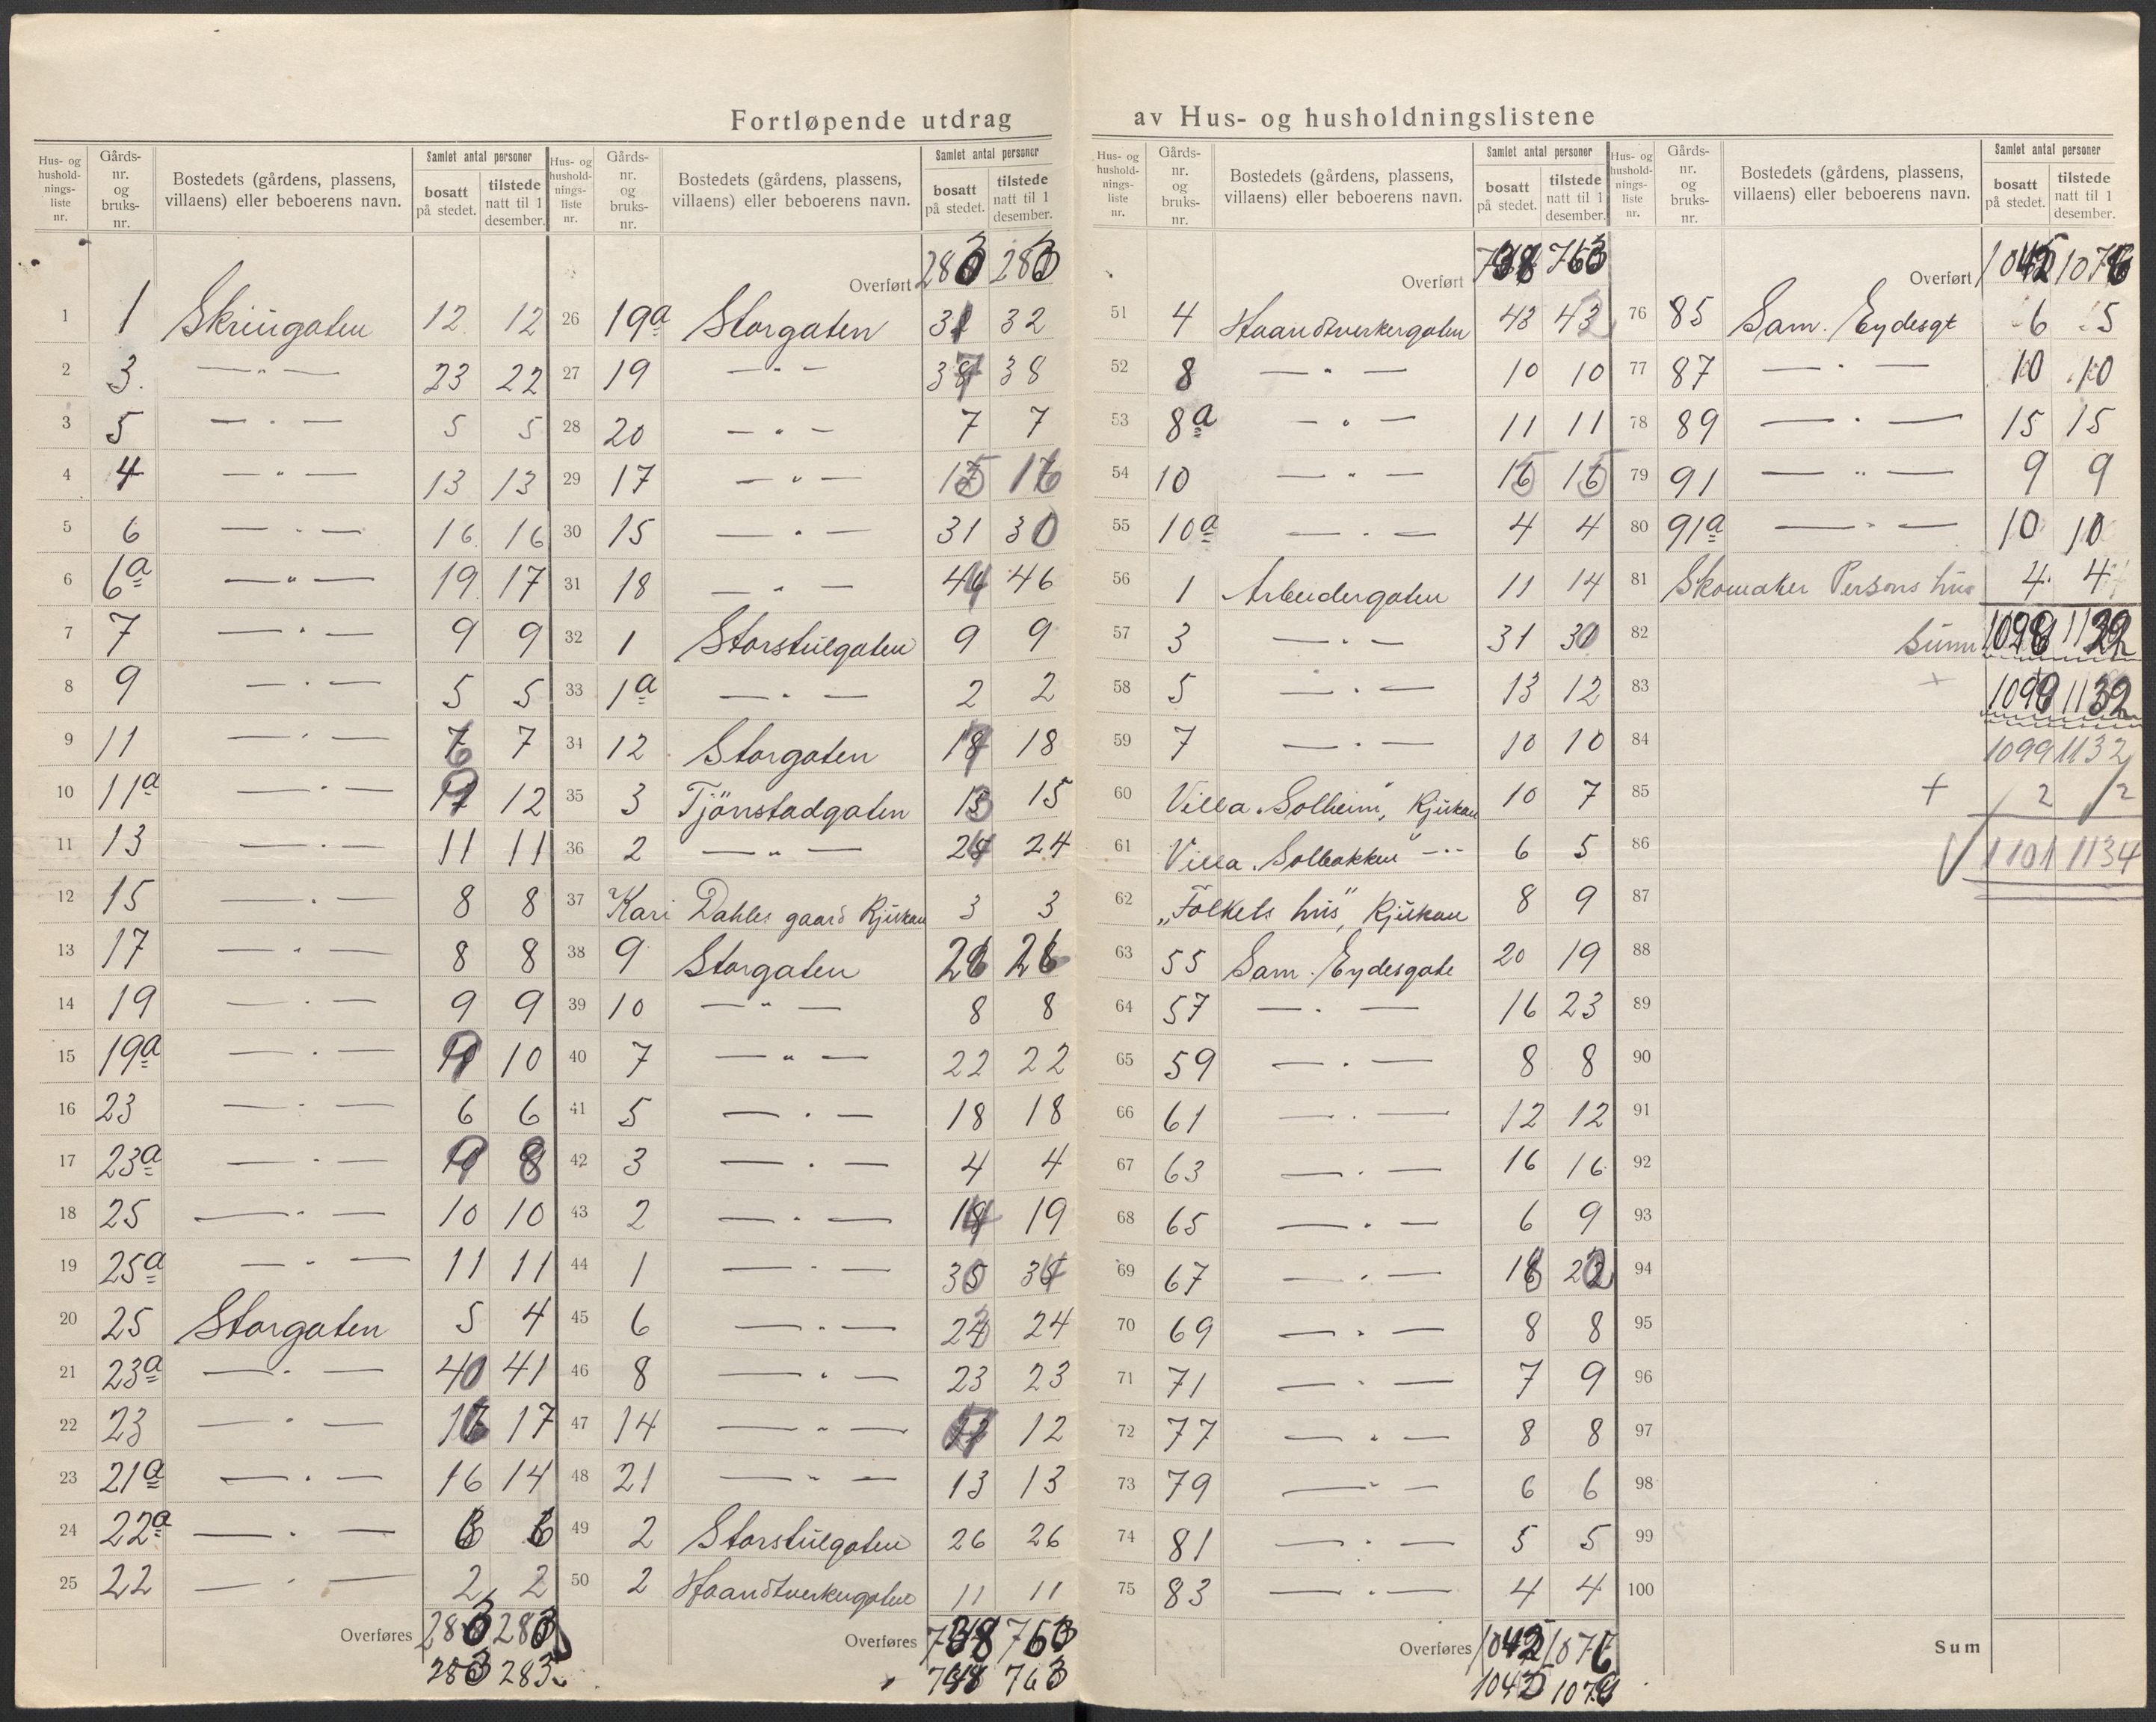 Fortløpende utdrag av Hus- og husholdningslistene
Hus- og hushold-nings-liste nr. Gårds-nr. og bruks-nr. Bostedets (gårdens, plassens, villaens) eller beboerens navn. Samlet antal personer bosatt på stedet. tilstede natt til 1 desember.
1 1 Skriugaten 12 12
2 3. — " — 23 22
3 5 — " — 5 5
4 4 — " — 13 13
5 6 — " — 16 16
6 6a — " — 19 17
7 7 — " — 9 9
8 9 — " — 5 5
9 11 — " — 7
10 11a — " — 12
11 13 — " — 11 11
12 15 — " — 8 8
13 17 — " — 8 8
14 19 — " — 9 9
15 19a — " — 10
16 23 — " — 6 6
17 23a — " — 9 8
18 25 — " — 10 10
19 25a — " — 11 11
20 25 Storgaten 5 4
21 23a — " — 40 41
22 23 — " — 16 17
23 21a — " — 16 14
24 22a — " — 6 6
25 22 — " — 2 2
Overføres 283 283
283 283
Hus- og hushold-nings-liste nr. Gårds-nr. og bruks-nr. Bostedets (gårdens, plassens, villaens) eller beboerens navn. Samlet antal personer bosatt på stedet. tilstede natt til 1 desember.
Overført 283 283
26 19a Storgaten 31 32
27 19 — " — 37 38
28 20 — " — 7 7
29 17 — " — 15 16
30 15 — " — 31 30
31 18 — " — 46
32 1 Storstulgaten 9 9
33 1a — " — 2 2
34 12 Storgaten 17 18
35 3 Tjönstadgaten 13 15
36 2 — " — 24 24
37 Kari Dahles gaard Rjukan 3 3
38 9 Storgaten 26 26
39 10 — " — 8 8
40 7 — " — 22 22
41 5 — " — 18 18
42 3 — " — 4 4
43 2 — " — 19
44 1 — " — 30 34
45 6 — " — 23 24
46 8 — " — 23 23
47 14 — " — 12
48 21 — " — 13 13
49 2 Storstulgaten 26 26
50 2 Haandtverkergaten 11 11
Overføres 738 763
738 763
Hus- og hushold-nings-liste nr. Gårds-nr. og bruks-nr. Bostedets (gårdens, plassens, villaens) eller beboerens navn. Samlet antal personer bosatt på stedet. tilstede natt til 1 desember.
Overført 738 763
51 4 Haandtverkergaten 43 43
52 8 — " — 10 10
53 8a — " — 11 11
54 10 — " — 15 15
55 10a — " — 4 4
56 1 Arbeidergaten 11 14
57 3 — " — 31 30
58 5 — " — 13 12
59 7 — " — 10 10
60 Villa "Solheim", Rjukan 10 7
61 Villa "Solbakken" — " — 6 5
62 "Folkets hus", Rjukan 8 9
63 55 Sam. Eydesgate 20 19
64 57 — " — 16 23
65 59 — " — 8 8
66 61 — " — 12 12
67 63 — " — 16 16
68 65 — " — 6 9
69 67 — " — 18 22
70 69 — " — 8 8
71 71 — " — 7 9
72 77 — " — 8 8
73 79 — " — 6 6
74 81 — " — 5 5
75 83 — " — 4 4
Overføres 1045 1076
1045
Hus- og hushold-nings-liste nr. Gårds-nr. og bruks-nr. Bostedets (gårdens, plassens, villaens) eller beboerens navn. Samlet antal personer bosatt på stedet. tilstede natt til 1 desember.
Overført 1045 1076
76 85 Sam. Eydesgt 6 5
77 87 — " — 10 10
78 89 — " — 15 15
79 91 — " — 9 9
80 91a — " — 10 10
81 Skomaker Persons hus 4 4
82 Sum 1132
83 + 1132
84 1099 1132
85 + 2 2
86 1101 1134
87
88
89
90
91
92
93
94
95
96
97
98
99
100
Sum